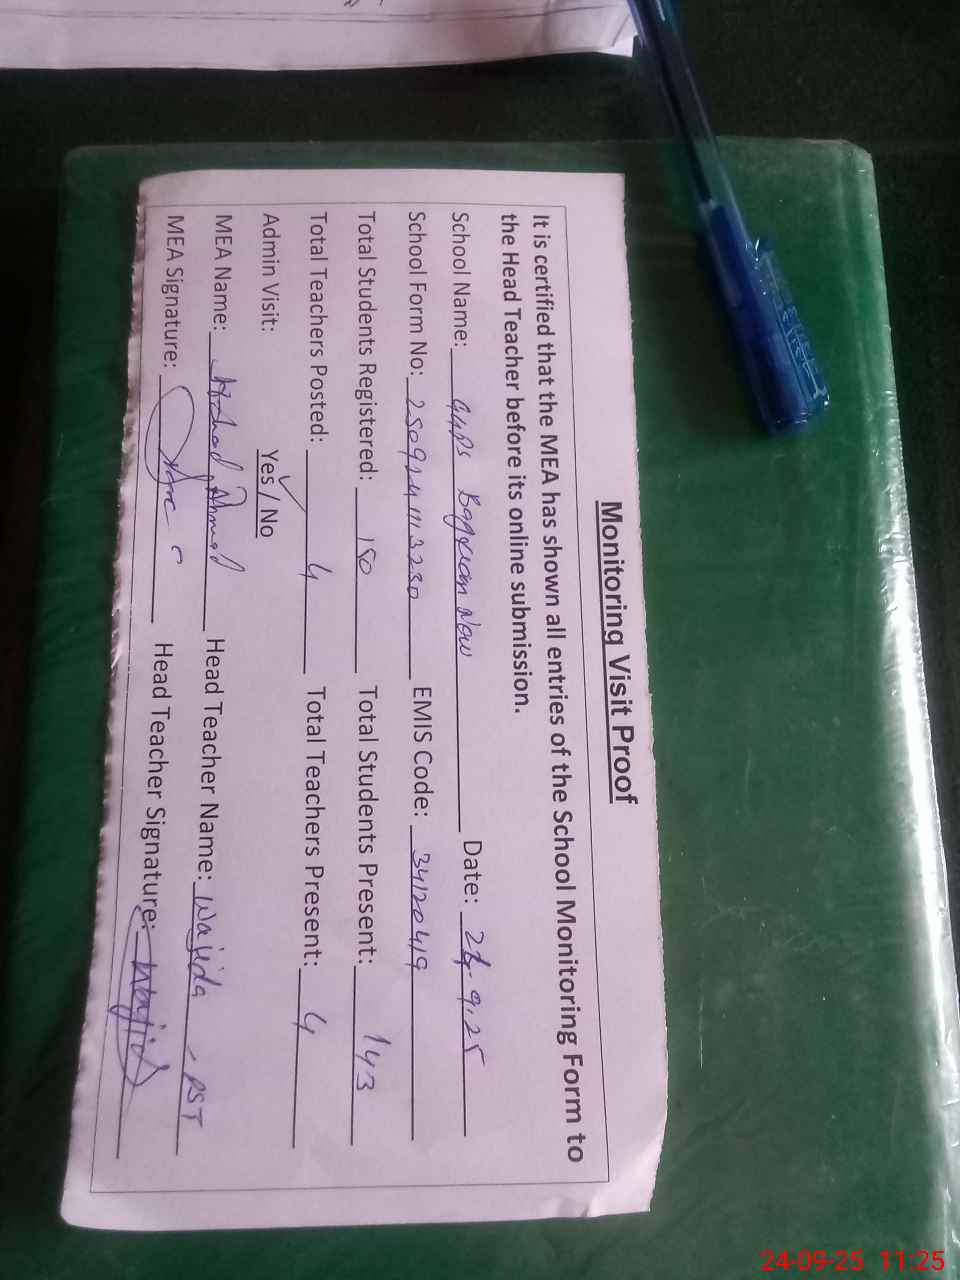 Monitoring Visit Proof
It is certified that the MEA has shown all entries of the School Monitoring Form to
the Head Teacher before its online submission.
School Name: Now Date: 24.9.25
School Form No: EMIS Code: 34120419
Total Students Registered: 150 Total Students Present: 143
Total Teachers Posted: 4 Total Teachers Present: 4
Admin Visit: Yes / No
MEA Name: Ahmad Head Teacher Name: Wajida, PST
MEA Signature: Head Teacher Signature: Wajida
24-09-25 11:25